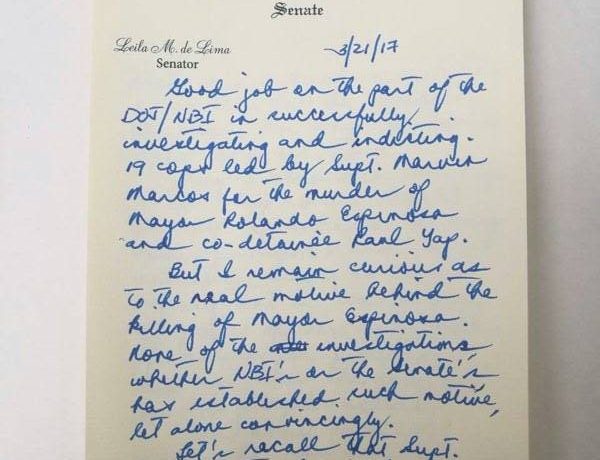 Senate
Leila M. de Lima
Senator
3/21/17
Good job on the part of the
DOJ/NBI in successfully
investigating and indicting
19 cops led by Supt. Marvin
Marcos for the murder of
Mayor Rolando Espinosa
and co-detainee Raul Yap.
But I remain curious as
to the real motive behind the
killing of Mayor Espinosa.
None of the investigations
whether NBI's or the Senate's
has established such motive,
let alone convincingly.
Let's recall that Supt.